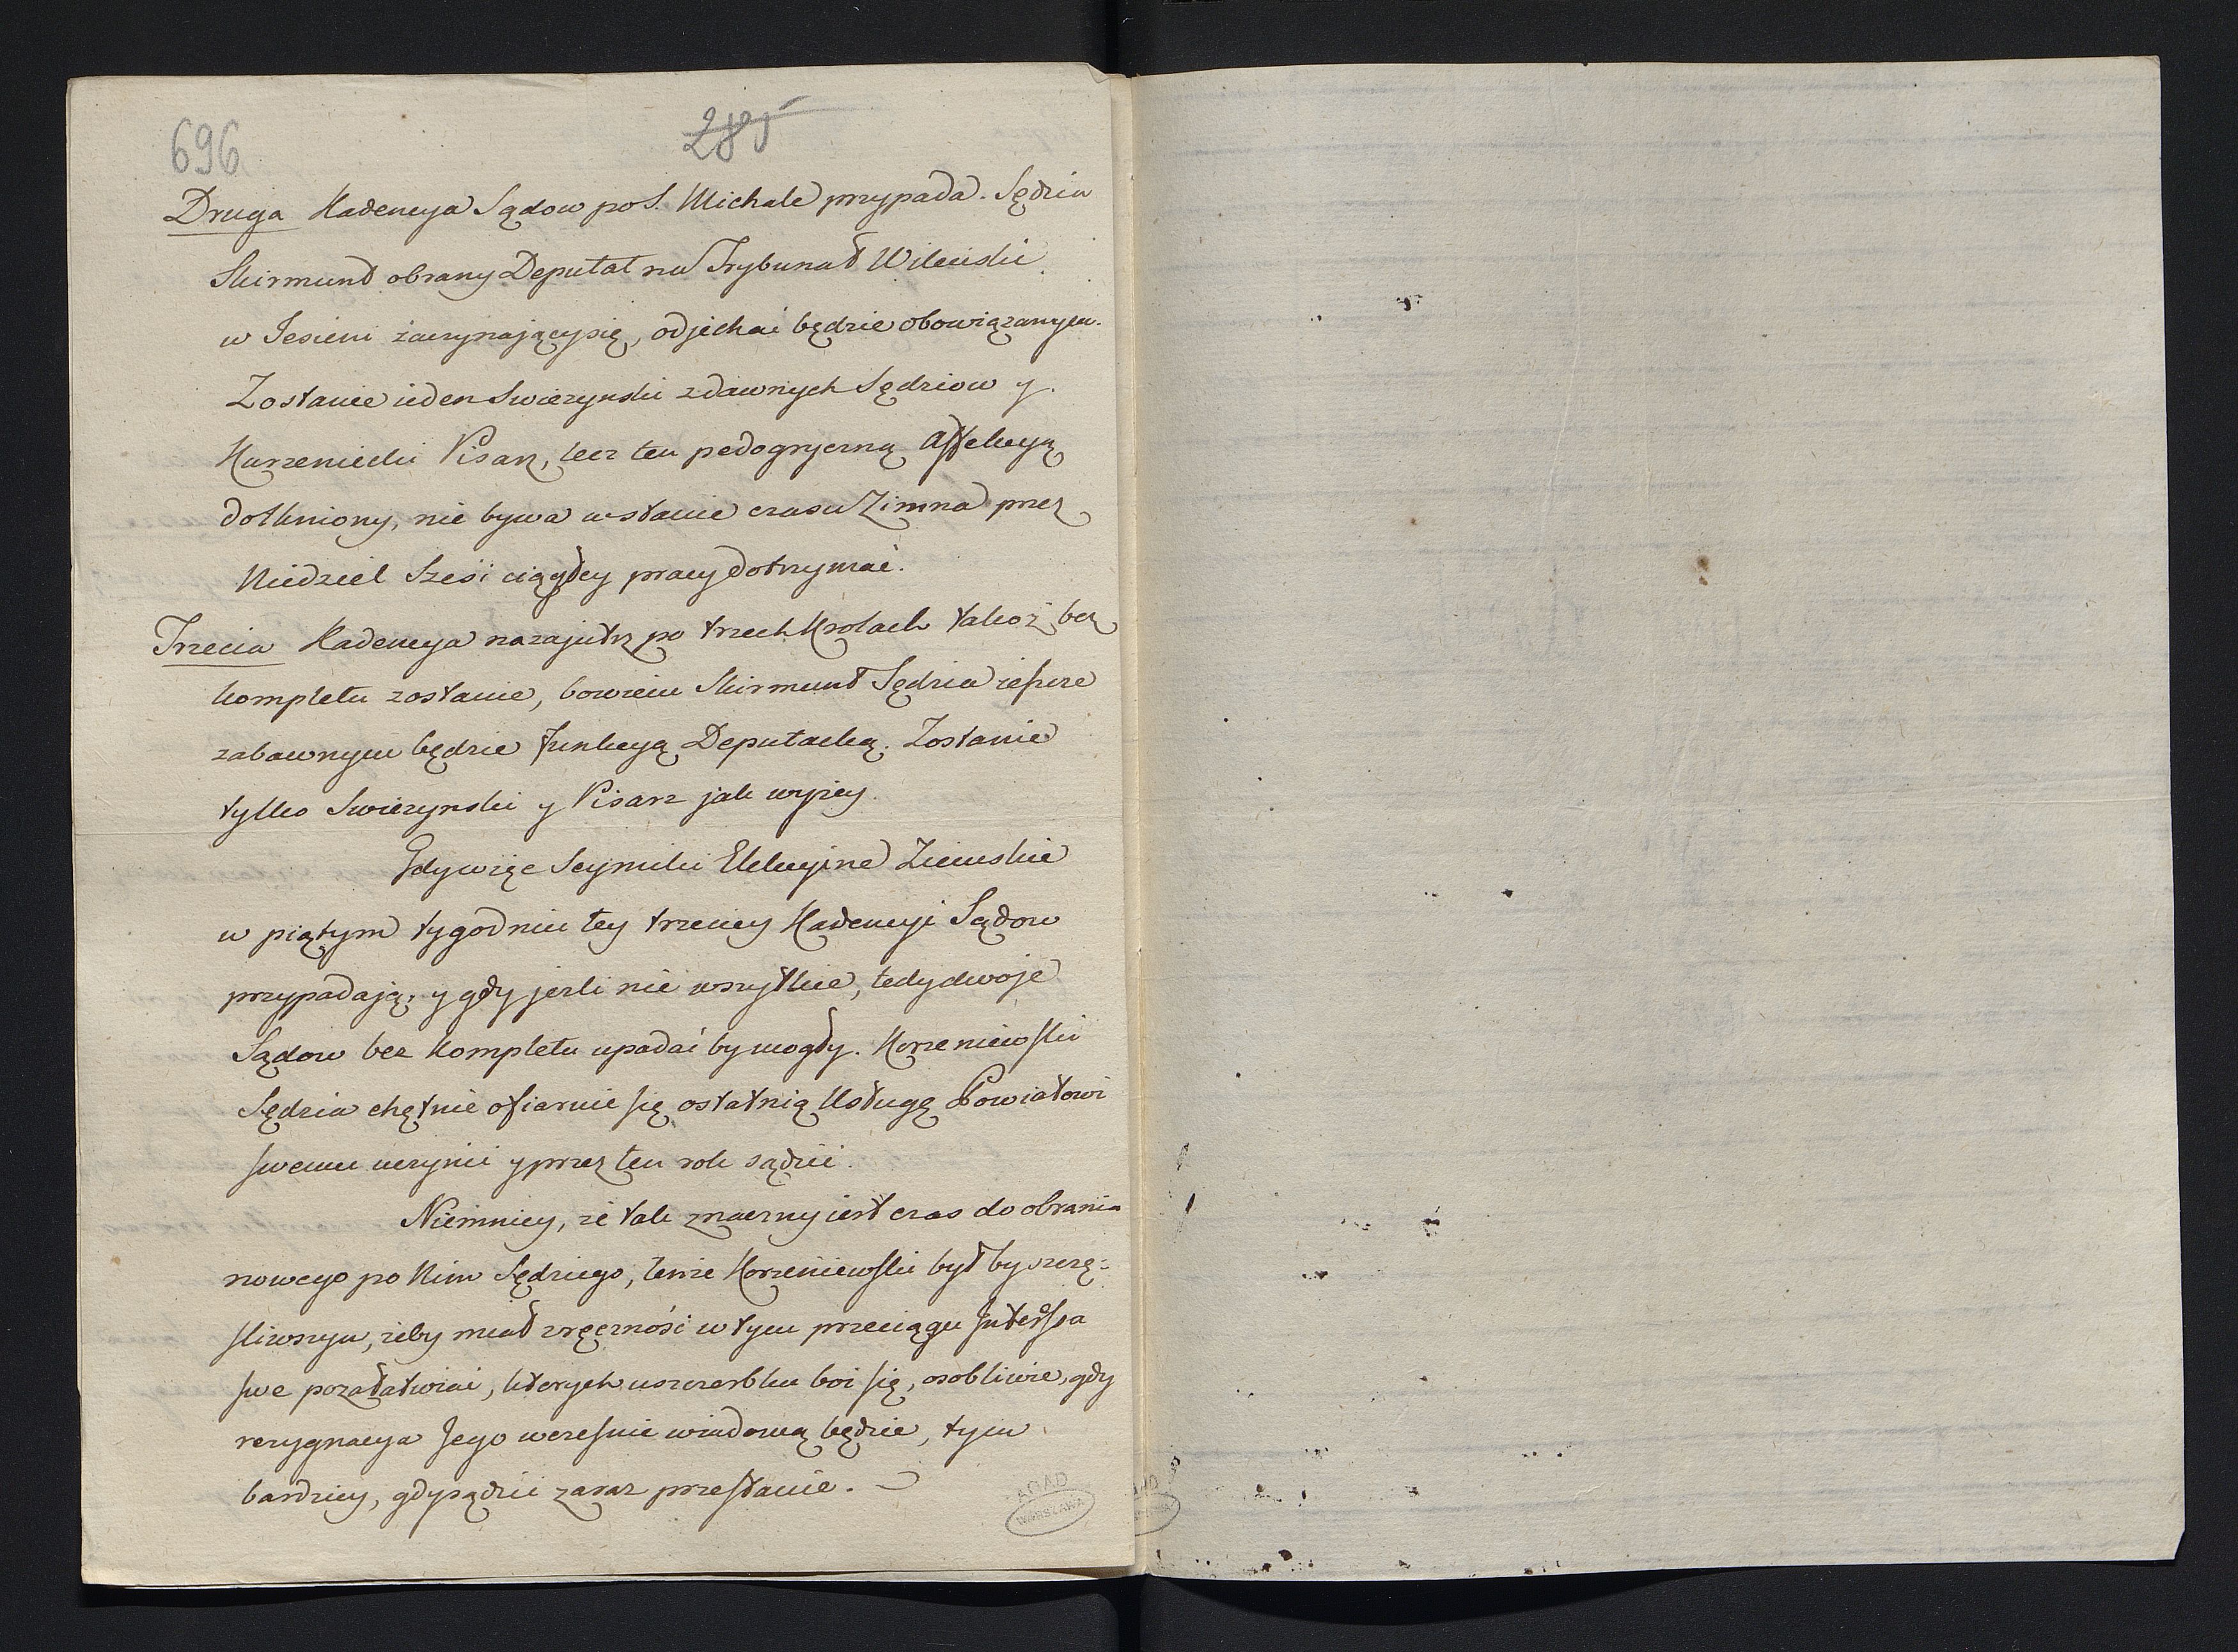 696
285
Druga Kadencya Sądow po S. Michale przypada. Sędzia
Skirmunt obrany Deputat na Trybunał Wilenski
w Jesieni zaczynający się, odjechać będzie obowiązanym.
Zostanie ieden Swiezynski z dawnych Sędziow y
Kurzeniecki Pisarz, lecz ten pedogryczną Affekcyą
dotkniony, nie bywa w stanie czasu Zimna przez
Niedziel Sześć ciągłey pracy dotrzymać.
Trzecia Kadencya nazajutrz po trzech Krolach takoż bez
kompletu zostanie, bowiem Skirmunt Sędzia ieszcze
zabawnym będzie funkcyą Deputacką. Zostanie
tylko Swiezynski y Pisarz jak wyżey.
Gdy więc Seymiki Elekcyine Ziemskie
w piątym tygodniu tey trzeciey Kadencyi Sądow
przypadają, y gdy jeżli nie wszytkie, tedy dwoje
Sądow bez kompletu upadać by mogły. Korzeniewski
Sędzia chętnie ofiaruie się ostatnią Usługę Powiatowi
swemu uczynić y przez ten rok sądzić.
Niemniey, że tak znaczny iest czas do obrania
nowego po Nim Sędziego, tenże Korzeniewski był by szczę-
sliwszym, żeby miał zręczność w tym przeciągu Interessa
swe pozałatwiać, ktorych uszczerbku boi się, osobliwie, gdy
rezygnacya Jego wczesnie wiadomą będzie, tym
bardziey, gdy sądzić zaraz przestanie.
AGAD
WARSZAWA